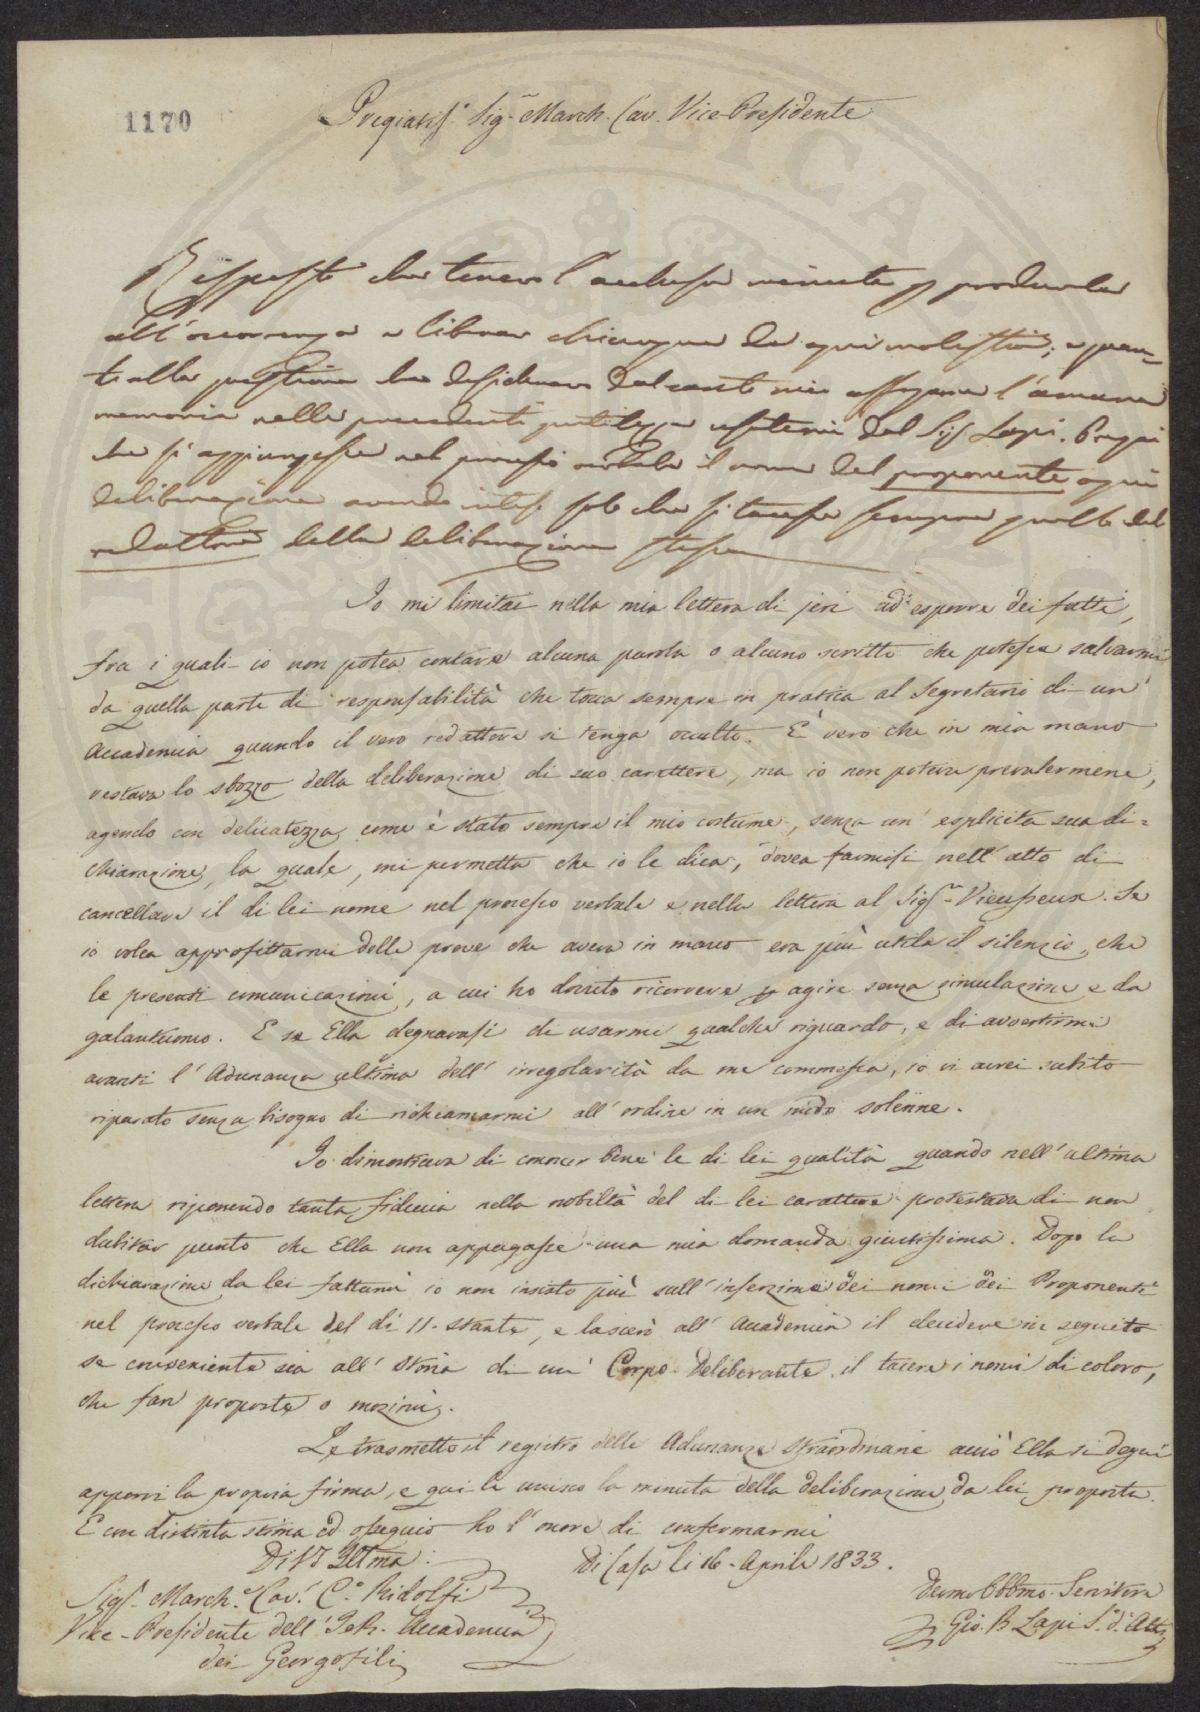 1170
Pregiatis.º Sig.r March. Cav. Vice-Presidente
Risposto che tenevo l'acclusa minuta p produrla
all'occorrenza e liberar chiunque da ogni molestia;
alla questione che desiderava dal canto mio
memoria nelle precedenti gentilezze del Sig. Lapi.
che si aggiungesse nel processo verbale il nome del proponente ogni
deliberazione avendo inteso solo che si tacesse sempre quello del
redattore della deliberazione stessa
Io mi limitai nella mia lettera di jeri ad esporre dei fatti,
fra i quali io non potea contare alcuna parola o alcuno scritto che potesse salvarmi
da quella parte di responsabilità che tocca sempre in pratica al Segretario di un'
Accademia quando il vero redattore si tenga occulto. È vero che in mia mano
restava lo sbozzo della deliberazione di suo carattere, ma io non poteva prevalermene,
agendo con delicatezza, come è stato sempre il mio costume, senza un' esplicita sua di=
chiarazione, la quale, mi permetta che io le dica, dovea farmisi nell'atto di
cancellare il di lei nome nel processo verbale e nella lettera al Sig.r Vieusseux. Se
io volea approfittarmi delle prove che aveva in mano era più utile il silenzio, che
le presenti comunicazioni, a cui ho dovuto ricorrere p agire senza simulazione e da
galantuomo. E se Ella degnavasi di usarmi qualche riguardo, e di avvertirmi
avanti l'Adunanza ultima dell' irregolarità da me commessa, io vi avrei subito
riparato senza bisogno di richiamarmi all'ordine in un modo solenne.
Io dimostrava di conoscer bene le di lei qualità quando nell'ultima
lettera riponendo tanta fiducia nella nobiltà del di lei carattere protestava di non
dubitar punto che Ella non appagasse una mia domanda giustissima. Dopo la
dichiarazione da lei fattami io non insisto più sull'inserzione dei nomi dei Proponenti
nel processo verbale del dì 11. stante, e lascerò all' Accademia il decidere in seguito
se conveniente sia all' storia di un' Corpo deliberante il tacere i nomi di coloro,
che fan proposte o mozioni.
Le trasmetto il registro delle Adunanze straordinarie acciò Ella si degni
apporvi la propria firma, e qui le unisco la minuta della deliberazione da lei proposta.
E con distinta stima ed ossequio ho l'onore di confermarmi
Di VS Illma
Di Casa li 16. Aprile 1833.
Sig.r March.e Cav.r C.o Ridolfi
Vice-Presidente dell' I e R. Accademia
dei Georgofili
Devmo Obbmo Servitore
Gio. B Lapi S. d' Atti